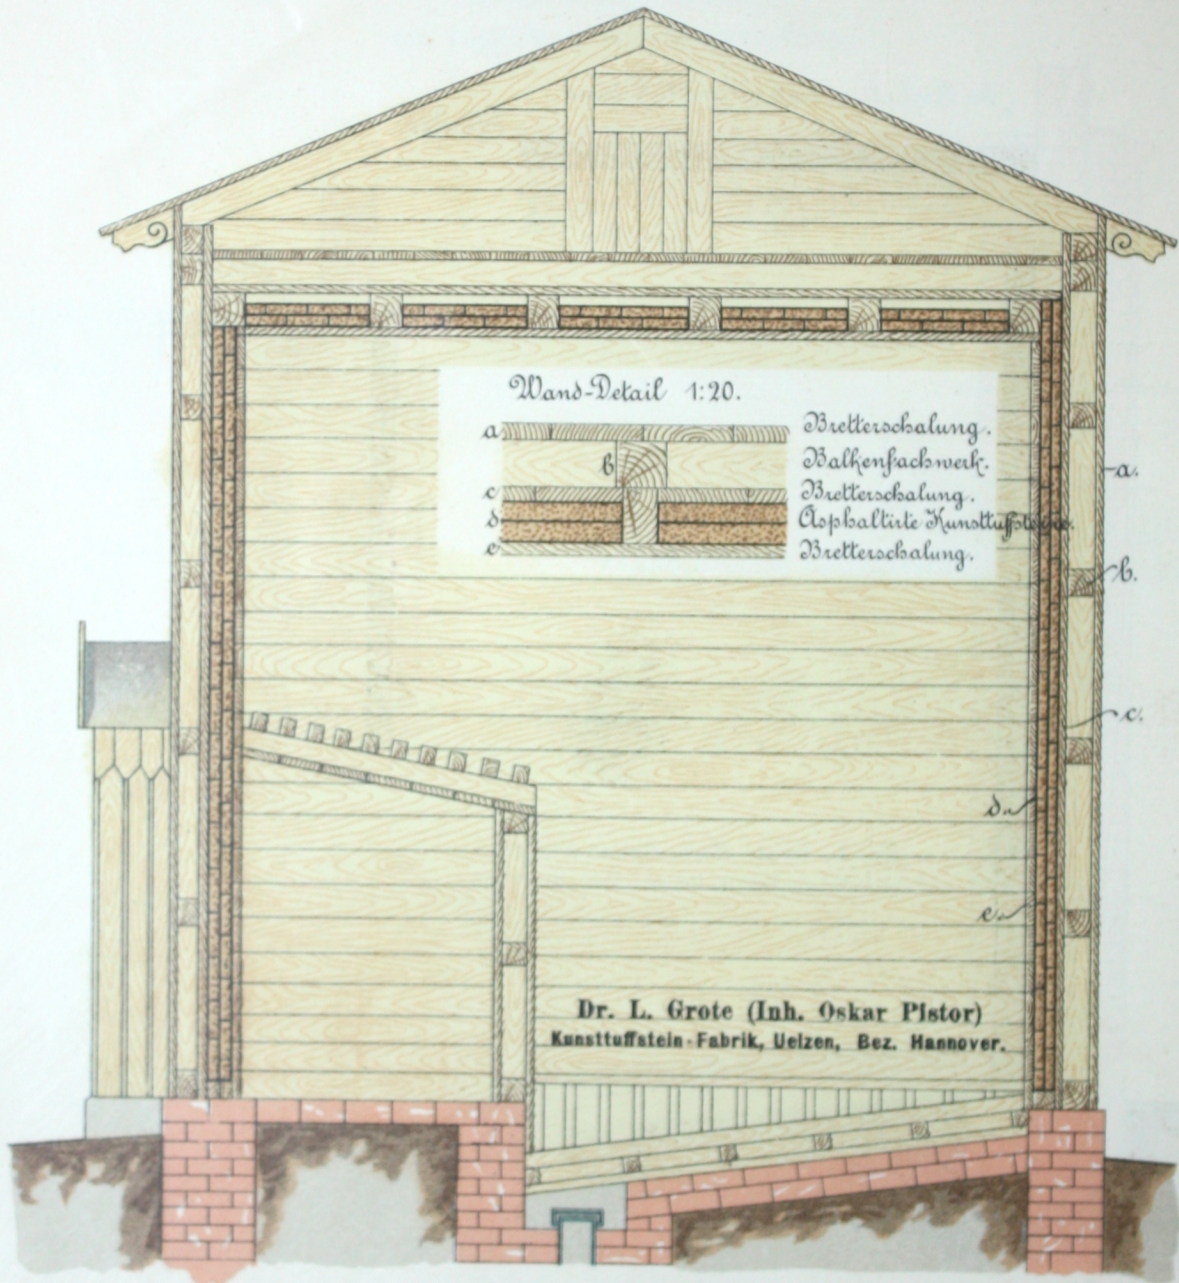 Wand-Detail 1:20.
a Bretterschalung.
b Balkenfachwerk.
c Bretterschalung.
d Asphaltirte Kunsttuffsteine.
e Bretterschalung.
a.
b.
c.
d.
e.
Dr. L. Grote (Inh. Oskar Pistor)
Kunsttuffstein-Fabrik, Uelzen, Bez. Hannover.